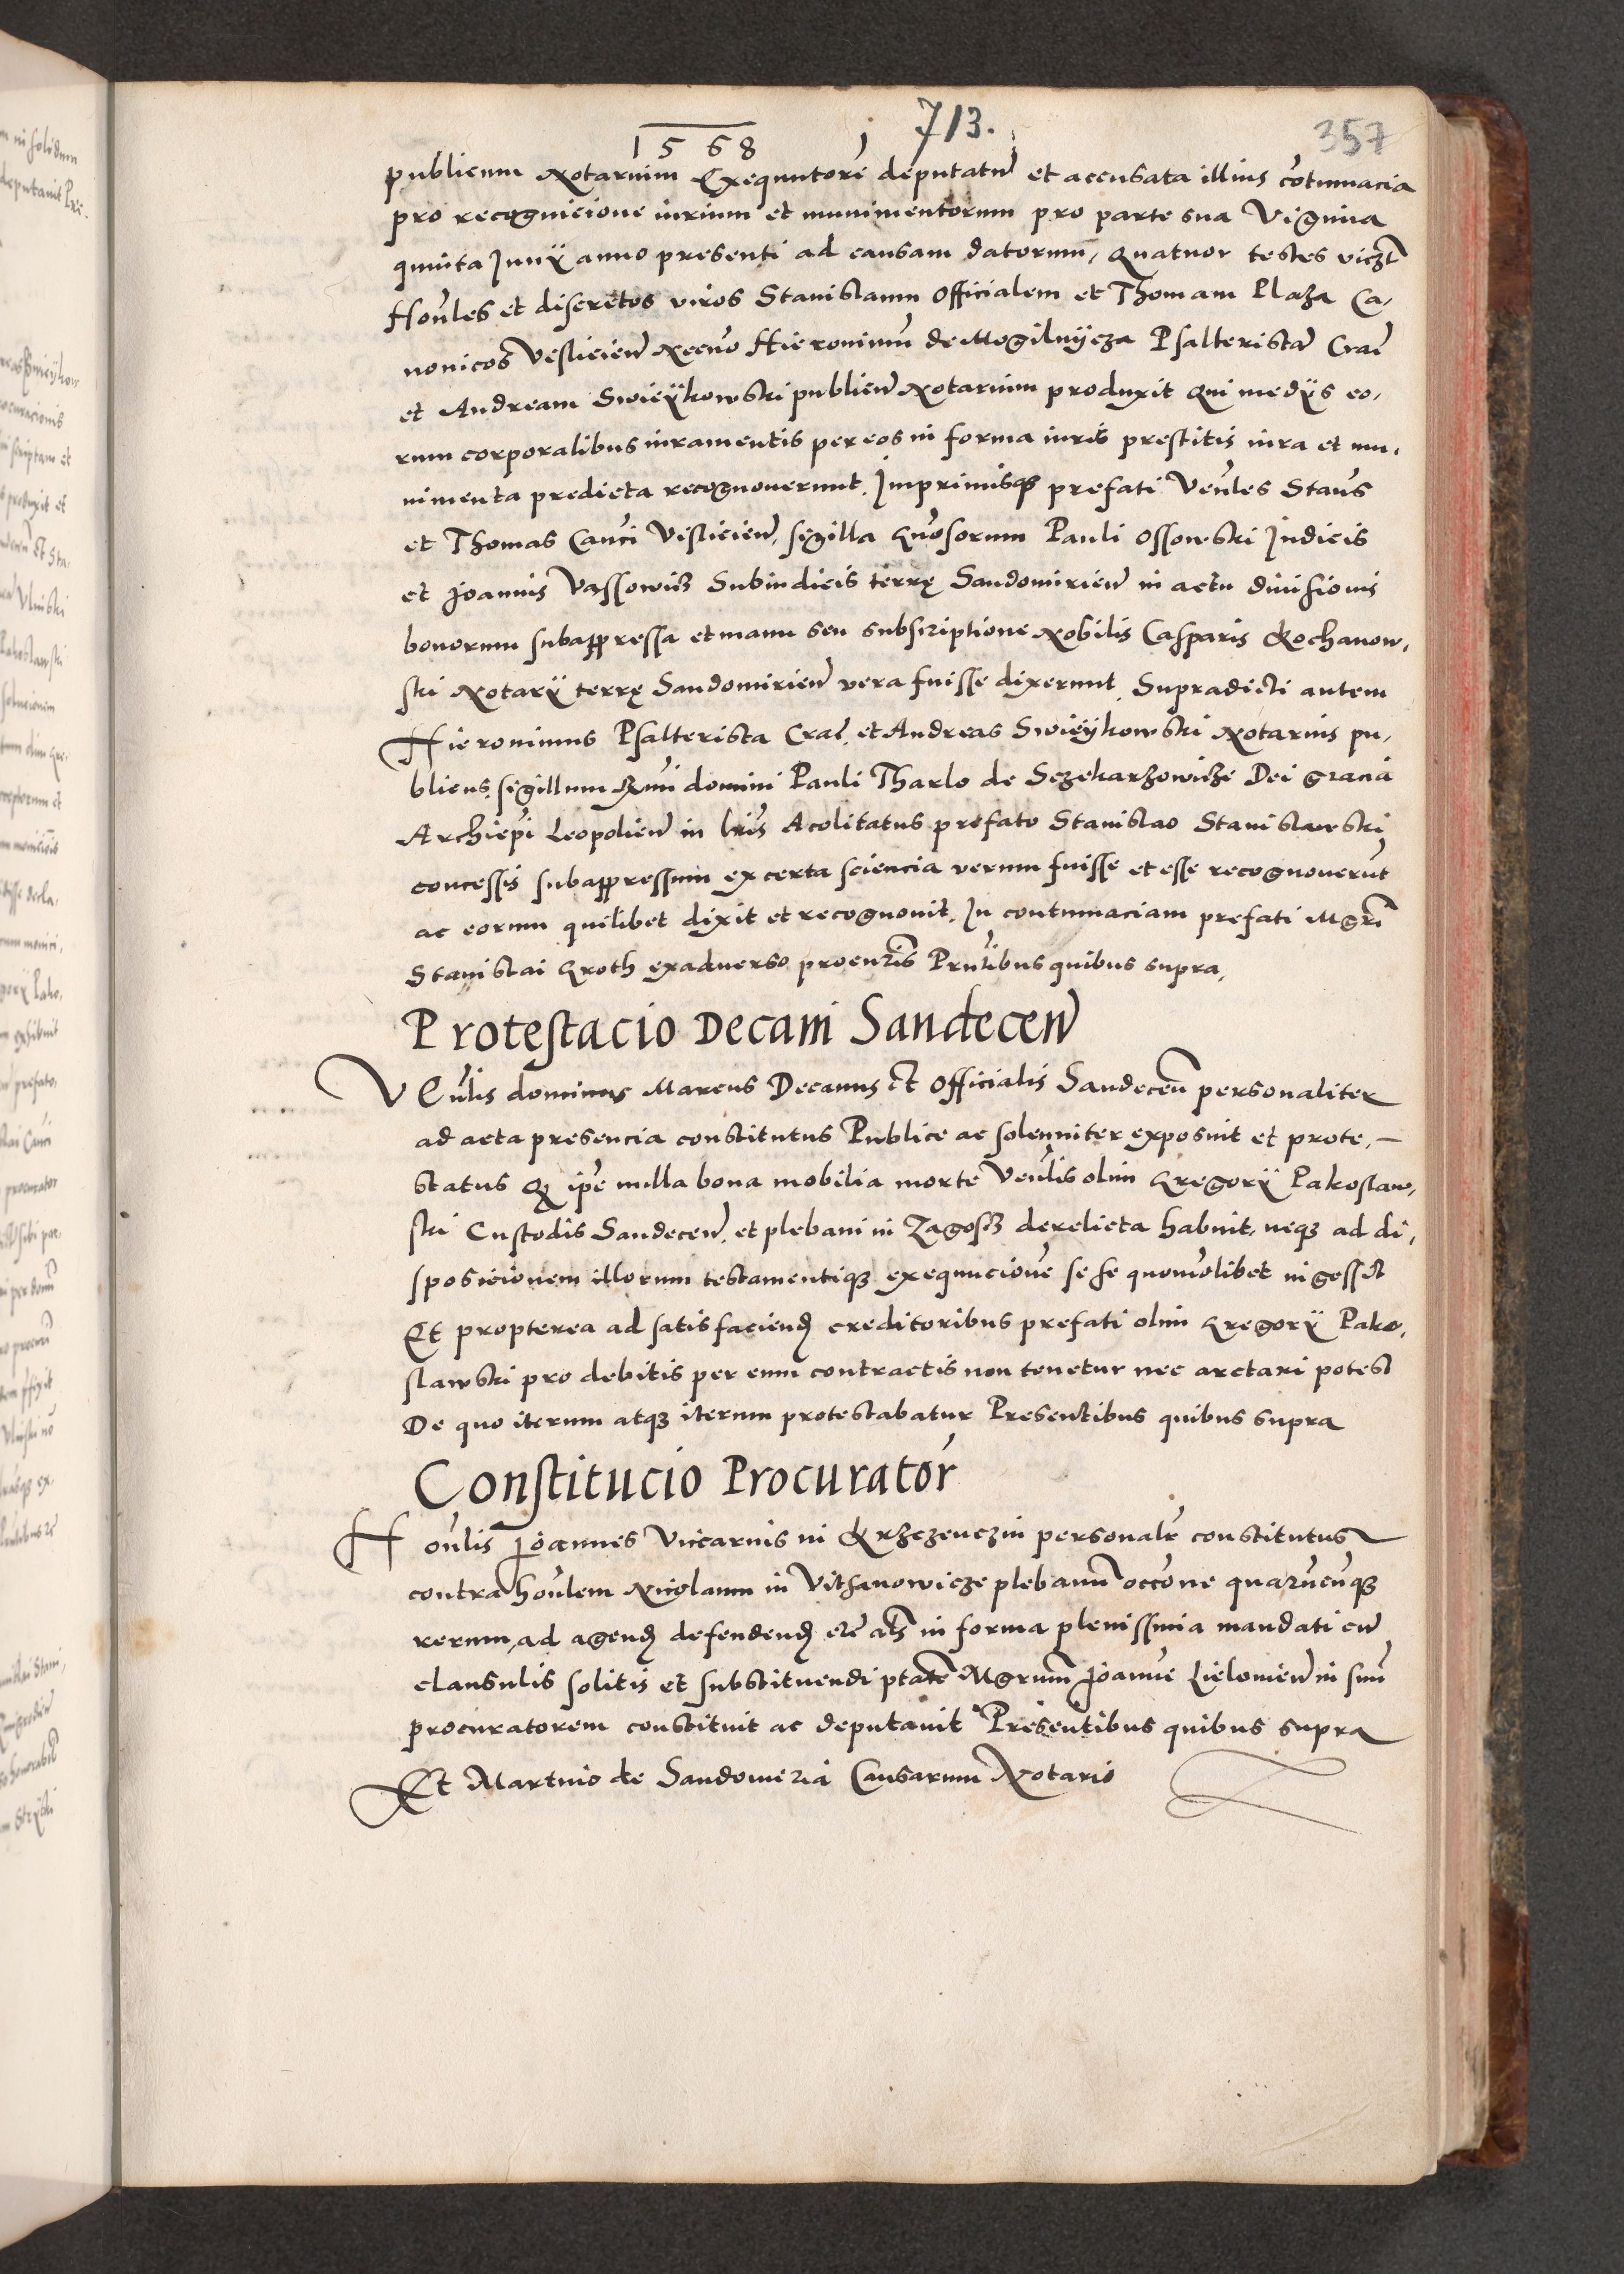 713.
357
1568
publicum Notarium Exequutorē deputatū et accusata illius cōtumacia
pro recognicione iurium et munimentorum pro parte sua Vigiuta
quinta Junÿ anno presenti ad causam datorum, Quatuor testes viczt
Hon̄les et discretos viros Stanislaum Officialem et Thomam Plaza Ca,
nonicos Vislicien̄ necno Hieronimū de Mogilnÿcza Psalteristā Crac̄
et Andream Swieÿkowski publicū Notarium produxit Qui medÿs eo,
rum corporalibus iuramentis per eos in forma iuris prestitis iura et mu,
nimenta predicta recognouerunt. Imprimisq̄ prefati Ven̄les Staūs
et Thomas Can̄ci Vislicien̄, sigilla Gn̄osorum Pauli Ossowski Judicis
et Joannis Vassowicz Subiudicis terrę Sandomirien̄ in actu diuisionis
bonorum subappressa et manu seu subscriptione Nobilis Casparis Kochanow,
ski Notarÿ terrę Sandomirien̄ vera fuisse dixerunt. Supradicti autem
Hieronimus Psalterista Crac̄. et Andreas Swieÿkowski Notarius pu,
blicus, sigillum Rm̄i domini Pauli Tharlo de Sczekarzowicze Dei gracia
Archiep̄i Leopolien̄ in lr̄is Acolitatus prefato Stanislao Stanislawski
concessis subappressum ex certa sciencia verum fuisse et esse recognouerūt
ac eorum quilibet dixit et recognouit. In contumaciam prefati Mgr̄i
Stanislai Groth exaduerso procur̄is Prn̄tibus quibus supra,
Protestacio Decani Sandecen̄
Ven̄lis dominus Marcus Decanus et Officialis Sandecen̄ personaliter
ad acta presencia constitutus Publice ac solenniter exposuit et prote,
status Q ip̄e nulla bona mobilia morte Ven̄lis olim Gregorÿ Pakoslaw,
ski Custodis Sandecen̄. et plebani in Zagoscz derelicta habuit, neqz ad di,
sposicionem illorum testamentiqz exequucionē sese quomōlibet ingessit
Et propterea ad satisfaciend̄ creditoribus prefati olim Gregorÿ Pako,
slawski pro debitis per eum contractis non tenetur nec arctari potest
De quo iterum atqz iterum protestabatur Presentibus quibus supra
Constitucio Procurator̄
Hon̄lis Joannes Vicarius in Krzczenczin personalr̄ constitutus
contra hon̄lem Nicolaum in Vithanowicze plebanū occōne quarūcūqz
rerum, ad agend̄ defendend̄ etc̄ als̄ in forma plenissima mandati cū
clausulis solitis et substituendi ptāte Mgrum Joannē Lielomien̄ in suū
procuratorem constituit ac deputauit Presentibus quibus supra
Et Martino de Sandomeria Causarum Notario